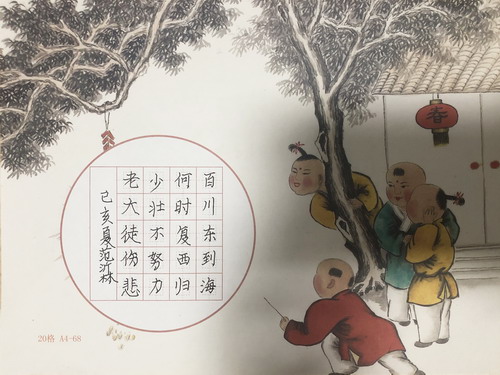 百川东到海
何时复西归
少壮不努力
老大徒伤悲
己亥夏范沂林
春
20格 A4-68